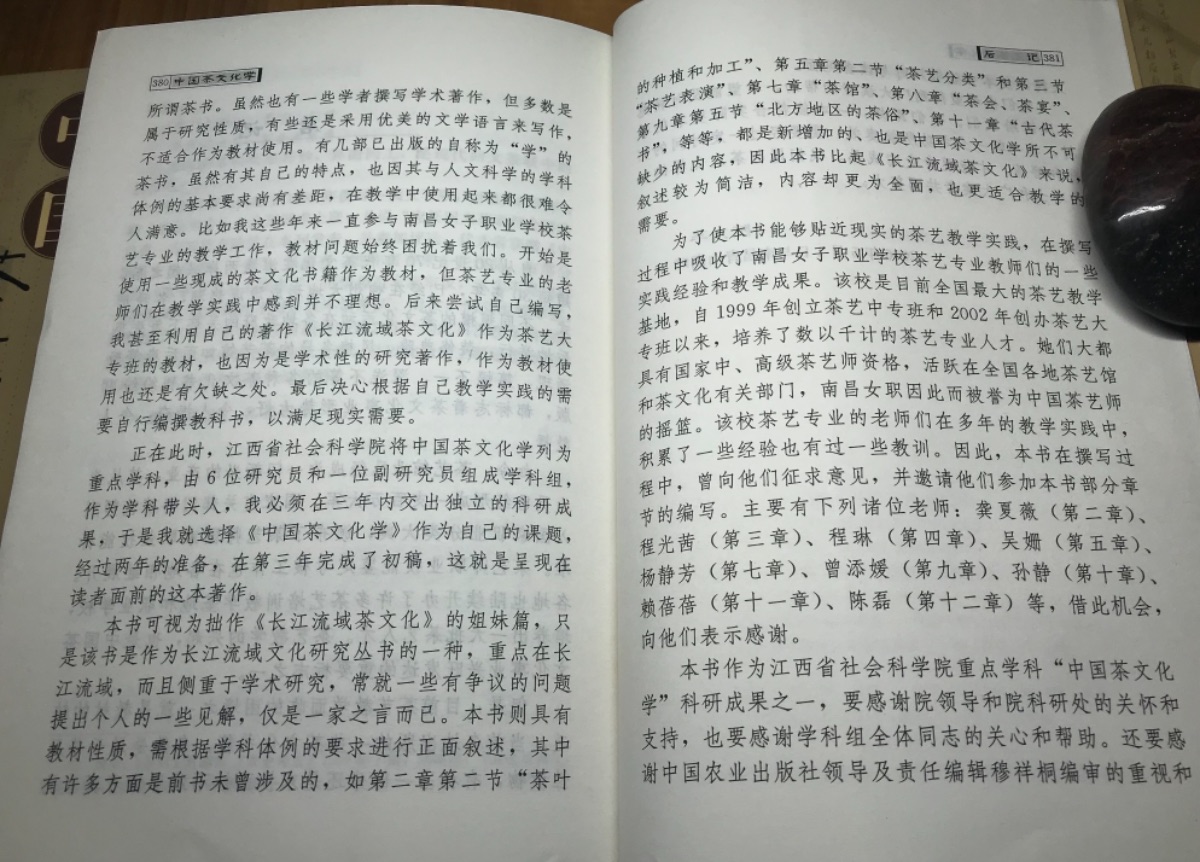 380 中国茶文化学
所谓茶书。虽然也有一些学者撰写学术著作，但多数是
属于研究性质，有些还是采用优美的文学语言来写作，
不适合作为教材使用。有几部已出版的自称为“学”的
茶书，虽然有其自己的特点，也因其与人文科学的学科
体例的基本要求尚有差距，在教学中使用起来都很难令
人满意。比如我这些年来一直参与南昌女子职业学校茶
艺专业的教学工作，教材问题始终困扰着我们。开始是
使用一些现成的茶文化书籍作为教材，但茶艺专业的老
师们在教学实践中感到并不理想。后来尝试自己编写，
我甚至利用自己的著作《长江流域茶文化》作为茶艺大
专班的教材，也因为是学术性的研究著作，作为教材使
用也还是有欠缺之处。最后决心根据自己教学实践的需
要自行编撰教科书，以满足现实需要。
正在此时，江西省社会科学院将中国茶文化学列为
重点学科，由6位研究员和一位副研究员组成学科组，
作为学科带头人，我必须在三年内交出独立的科研成
果，于是我就选择《中国茶文化学》作为自己的课题，
经过两年的准备，在第三年完成了初稿，这就是呈现在
读者面前的这本著作。
本书可视为拙作《长江流域茶文化》的姐妹篇，只
是该书是作为长江流域文化研究丛书的一种，重点在长
江流域，而且侧重于学术研究，常就一些有争议的问题
提出个人的一些见解，仅是一家之言而已。本书则具有
教材性质，需根据学科体例的要求进行正面叙述，其中
有许多方面是前书未曾涉及的，如第二章第二节“茶叶
后 记 381
的种植和加工”、第五章第二节“茶艺分类”和第三节
“茶艺表演”、第七章“茶馆”、第八章“茶会、茶宴”、
第九章第五节“北方地区的茶俗”、第十一章“古代茶
书”，等等，都是新增加的、也是中国茶文化学所不可
缺少的内容，因此本书比起《长江流域茶文化》来说，
叙述较为简洁，内容却更为全面，也更适合教学的
需要。
为了使本书能够贴近现实的茶艺教学实践，在撰写
过程中吸收了南昌女子职业学校茶艺专业教师们的一些
实践经验和教学成果。该校是目前全国最大的茶艺教学
基地，自1999年创立茶艺中专班和2002年创办茶艺大
专班以来，培养了数以千计的茶艺专业人才。她们大都
具有国家中、高级茶艺师资格，活跃在全国各地茶艺馆
和茶文化有关部门，南昌女职因此而被誉为中国茶艺师
的摇篮。该校茶艺专业的老师们在多年的教学实践中，
积累了一些经验也有过一些教训。因此，本书在撰写过
程中，曾向他们征求意见，并邀请他们参加本书部分章
节的编写。主要有下列诸位老师：龚夏薇（第二章）、
程光茜（第三章）、程琳（第四章）、吴姗（第五章）、
杨静芳（第七章）、曾添媛（第九章）、孙静（第十章）、
赖蓓蓓（第十一章）、陈磊（第十二章）等，借此机会，
向他们表示感谢。
本书作为江西省社会科学院重点学科“中国茶文化
学”科研成果之一，要感谢院领导和院科研处的关怀和
支持，也要感谢学科组全体同志的关心和帮助。还要感
谢中国农业出版社领导及责任编辑穆祥桐编审的重视和